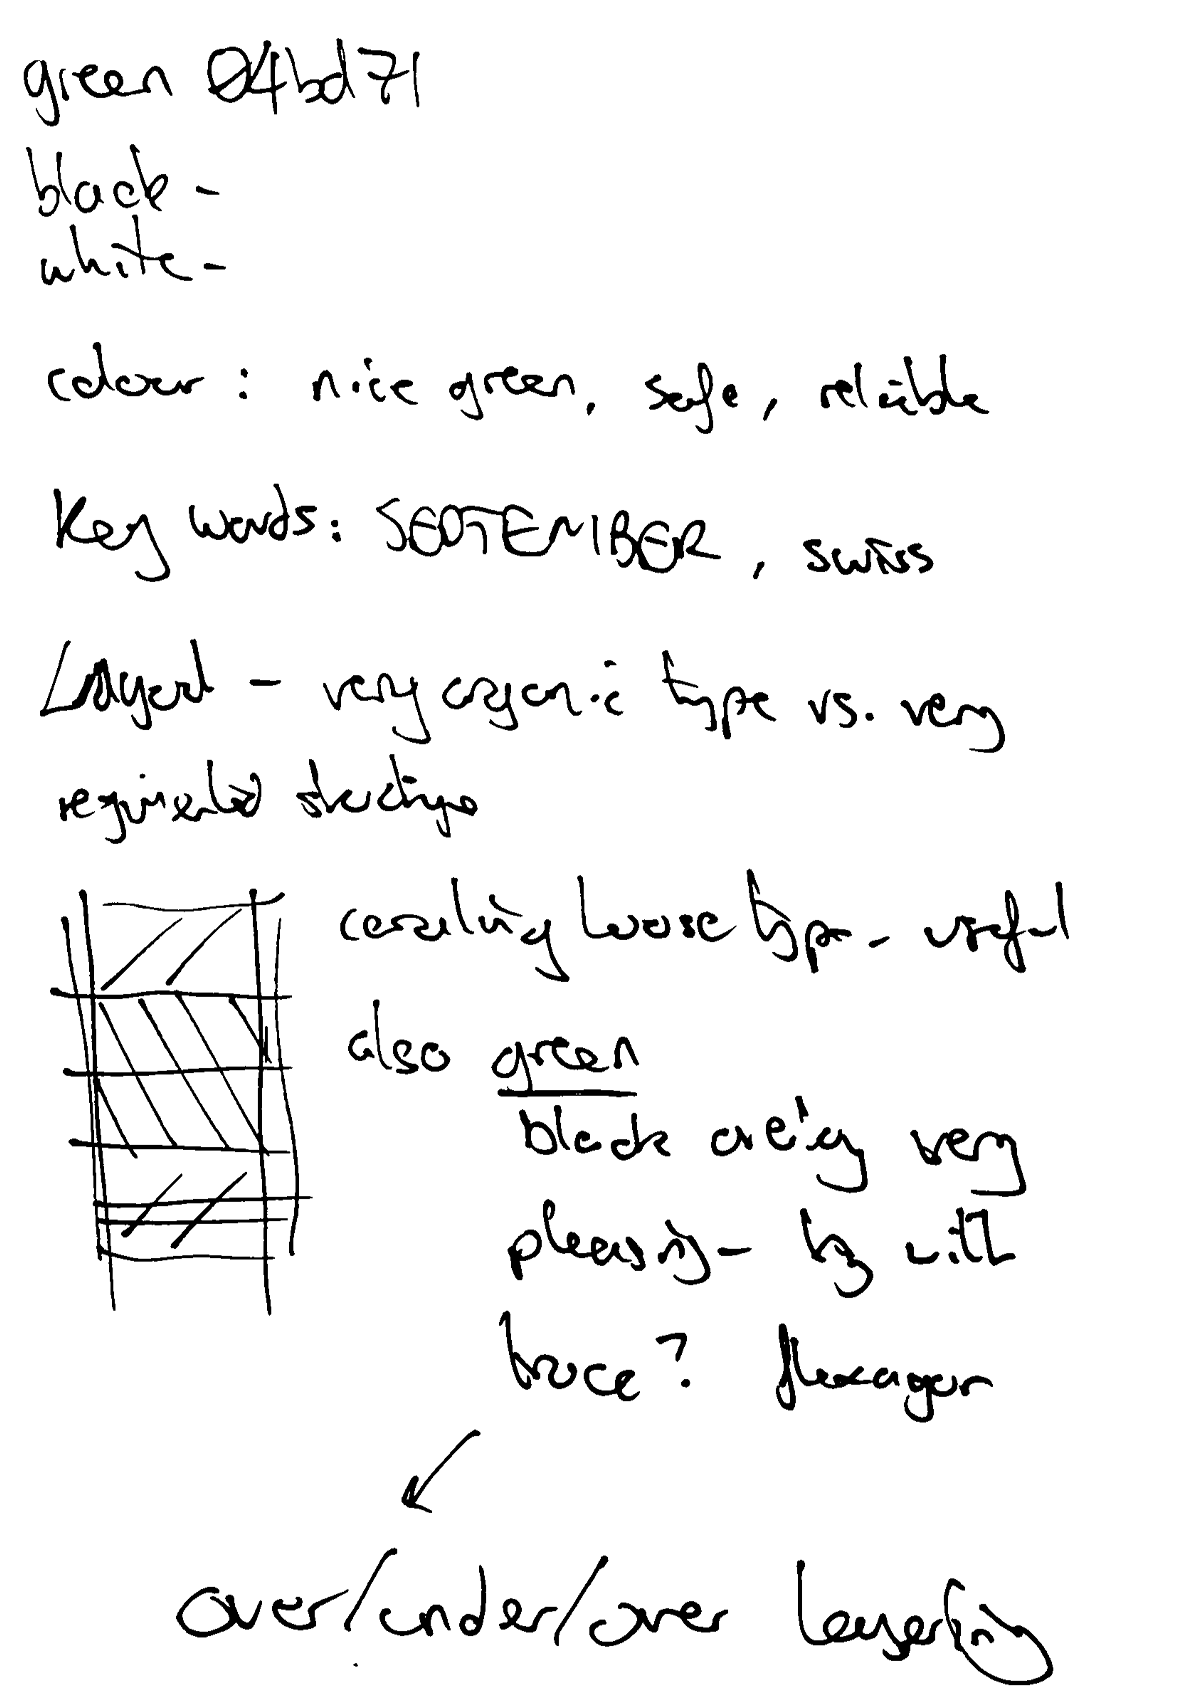 green 04bd71
black -
white -
colour : nice green, safe, reliable
Key words: SEPTEMBER, swiss
Layout - very organic type vs. very
regimented
loose type - useful
also green
black very
pleasing - try with
truce? flexagon
over/under/over layering